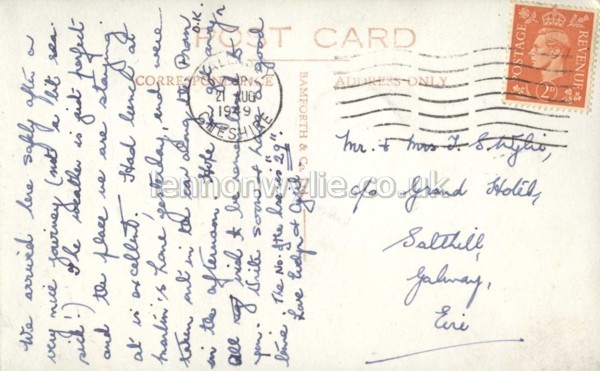 POST CARD
CORRESPONDENCE
ADDRESS ONLY
BAMFORTH & Co.
WALLASEY
21 AUG
1949
CHESHIRE
POSTAGE
REVENUE
2D
lennonwylie.co.uk
Mr. & Mrs T. S. Wylie,
c/o Grand Hotel,
Salthill,
Galway,
Eire
We arrived here safely after a
very nice journey (not a bit sea
sick!) The weather is just perfect
and the place we are staying
at is excellent. Had lunch at
Martin's home, yesterday, and were
taken out in the car along the Prom
in the afternoon. Hope
O.K.
All
to be remembered to
you. Write soon & have a good
time. The No. of the house is 29".
Love